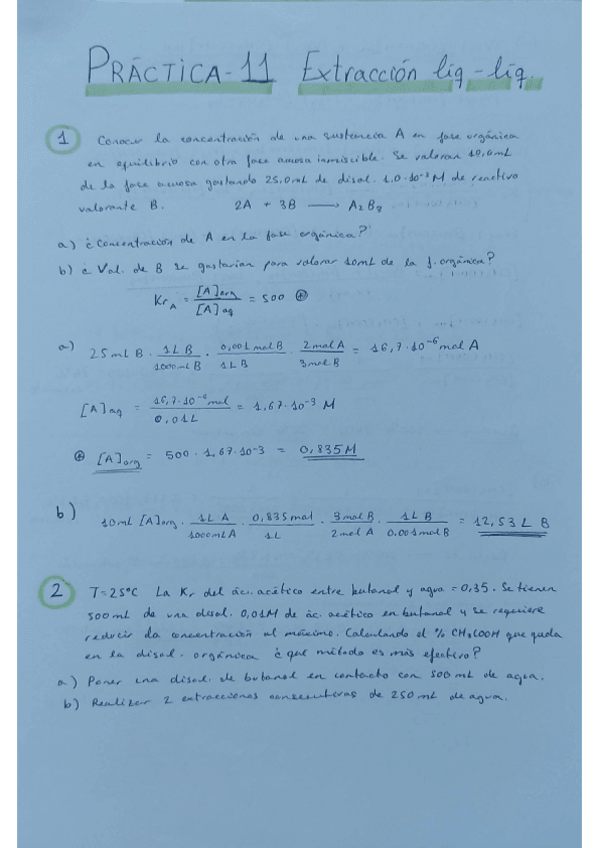 PRÁCTICA-11 Extracción líq-líq.
1 Conocer la concentración de una sustancia A en fase orgánica
en equilibrio con otra fase acuosa inmiscible. Se valoran 10,0mL
de la fase acuosa gastando 25,0mL de disol. 1,0·10⁻³ M de reactivo
valorante B. 2A + 3B ⟶ A₂B₃
a) ¿Concentración de A en la fase orgánica?
b) ¿ Val. de B se gastarían para valorar 10mL de la f. orgánica?
Kr_A = [A]org / [A]aq = 500 ⊕
a) 25mL B · 1L B / 1000mL B · 0,001 mol B / 1L B · 2mol A / 3mol B = 16,7·10⁻⁶ mol A
[A]aq = 16,7·10⁻⁶ mol / 0,01L = 1,67·10⁻³ M
⊕ [A]org = 500 · 1,67·10-3 = 0,835M
b) 10mL [A]org · 1L A / 1000mL A · 0,835mol / 1L · 3mol B / 2mol A · 1L B / 0,001mol B = 12,53 L B
2 T=25ºC La Kr del ác. acético entre butanol y agua = 0,35. Se tienen
500mL de una disol. 0,01M de ác. acético en butanol y se requiere
reducir la concentración al máximo. Calculando el % CH₃COOH que queda
en la disol. orgánica ¿ qué método es más efectivo?
a) Poner una disol. de butanol en contacto con 500 mL de agua.
b) Realizar 2 extracciones consecutivas de 250 mL de agua.